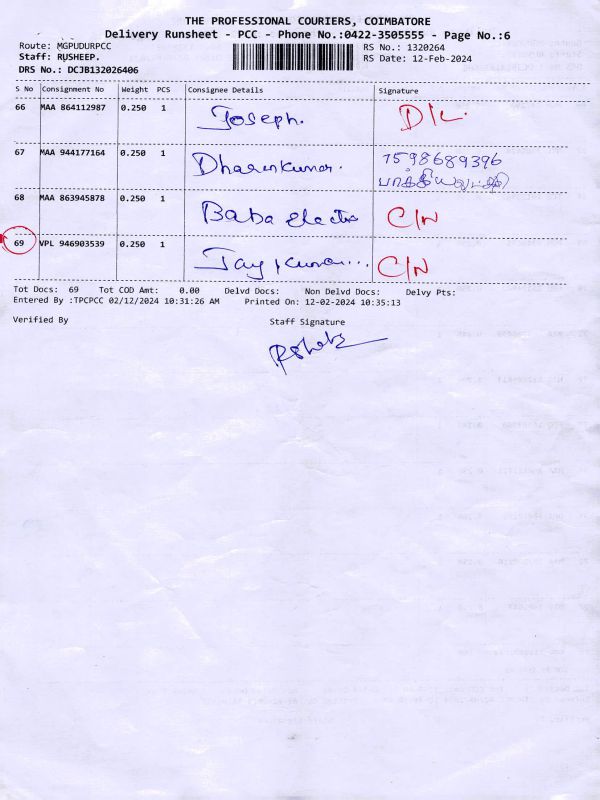 THE PROFESSIONAL COURIERS, COIMBATORE
Delivery Runsheet - PCC - Phone No.:0422-3505555 - Page No.:6
Route: MGPUDURPCC
RS No.: 1320264
Staff: RUSHEEP.
RS Date: 12-Feb-2024
DRS No.: DCJB132026406
S No Consignment No Weight PCS Consignee Details Signature
66 MAA 864112987 0.250 1 Joseph. D/L
67 MAA 944177164 0.250 1 Dharunkumar. 7598689396
68 MAA 863945878 0.250 1 Baba electro C/N
69 VPL 946903539 0.250 1 Jay kumar... C/N
Tot Docs: 69 Tot COD Amt: 0.00 Delvd Docs: Non Delvd Docs: Delvy Pts:
Entered By :TPCPCC 02/12/2024 10:31:26 AM Printed On: 12-02-2024 10:35:13
Verified By Staff Signature